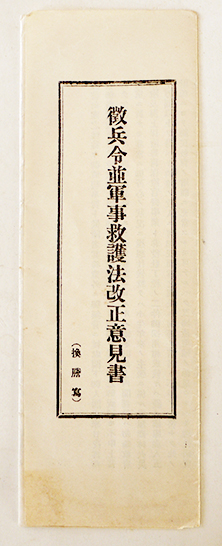 徴兵令並軍事救護法改正意見書
（換謄寫）